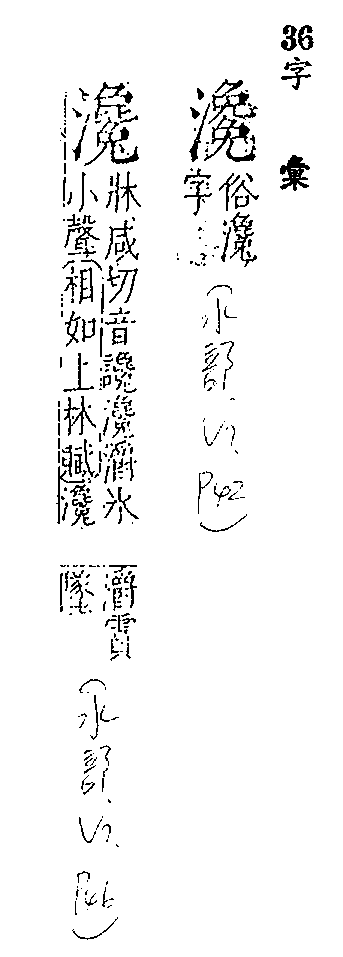 36 字彙
俗瀺
字
(水部. P42)
瀺
牀咸切音讒瀺灂水
小聲相如上林賦瀺
灂霣
墜
(水部. P46)